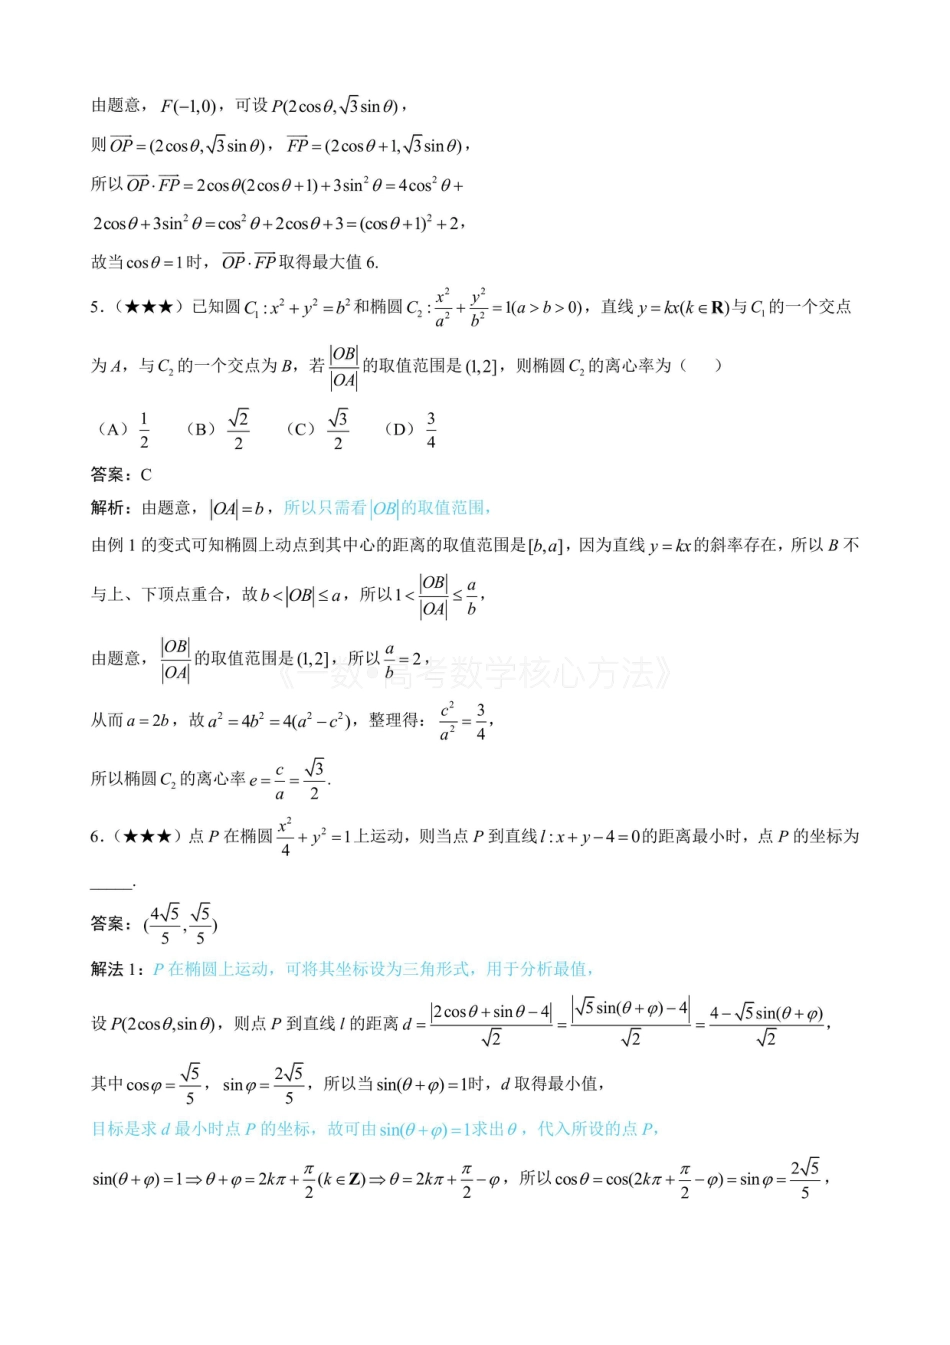 由题意，F(−1,0)，可设P(2cosθ,√3sinθ)，
则OP⃗=(2cosθ,√3sinθ)，FP⃗=(2cosθ+1,√3sinθ)，
所以OP⃗·FP⃗=2cosθ(2cosθ+1)+3sin²θ=4cos²θ+
2cosθ+3sin²θ=cos²θ+2cosθ+3=(cosθ+1)²+2，
故当cosθ=1时，OP⃗·FP⃗取得最大值 6.
5.（★★★）已知圆C₁:x²+y²=b²和椭圆C₂:x²/a²+y²/b²=1(a>b>0)，直线y=kx(k∈R)与C₁的一个交点
为A，与C₂的一个交点为B，若|OB|/|OA|的取值范围是(1,2]，则椭圆C₂的离心率为（ ）
（A）1/2 （B）√2/2 （C）√3/2 （D）3/4
答案：C
解析：由题意，|OA|=b，所以只需看|OB|的取值范围，
由例 1 的变式可知椭圆上动点到其中心的距离的取值范围是[b,a]，因为直线y=kx的斜率存在，所以 B 不
与上、下顶点重合，故b<|OB|≤a，所以1<|OB|/|OA|≤a/b，
由题意，|OB|/|OA|的取值范围是(1,2]，所以a/b=2，
《一数•高考数学核心方法》
从而a=2b，故a²=4b²=4(a²−c²)，整理得：c²/a²=3/4，
所以椭圆C₂的离心率e=c/a=√3/2.
6.（★★★）点 P 在椭圆x²/4+y²=1上运动，则当点 P 到直线l:x+y−4=0的距离最小时，点 P 的坐标为
_____.
答案：(4√5/5,√5/5)
解法 1：P 在椭圆上运动，可将其坐标设为三角形式，用于分析最值，
设P(2cosθ,sinθ)，则点 P 到直线 l 的距离d=|2cosθ+sinθ−4|/√2=|√5sin(θ+φ)−4|/√2=4−√5sin(θ+φ)/√2，
其中cosφ=√5/5，sinφ=2√5/5，所以当sin(θ+φ)=1时，d 取得最小值，
目标是求 d 最小时点 P 的坐标，故可由sin(θ+φ)=1求出θ，代入所设的点 P，
sin(θ+φ)=1⇒θ+φ=2kπ+π/2(k∈Z)⇒θ=2kπ+π/2−φ，所以cosθ=cos(2kπ+π/2−φ)=sinφ=2√5/5，